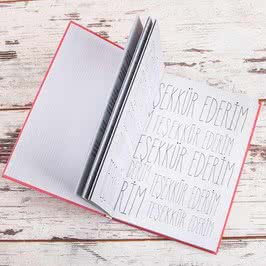 ŞEKKÜR EDERİM
TEŞEKKÜR EDERİM
EŞEKKÜR EDERİM
TEŞEKKÜR EDERİM
RİM TEŞEKKÜR EDERİM
TEŞEKKÜR EDERİM